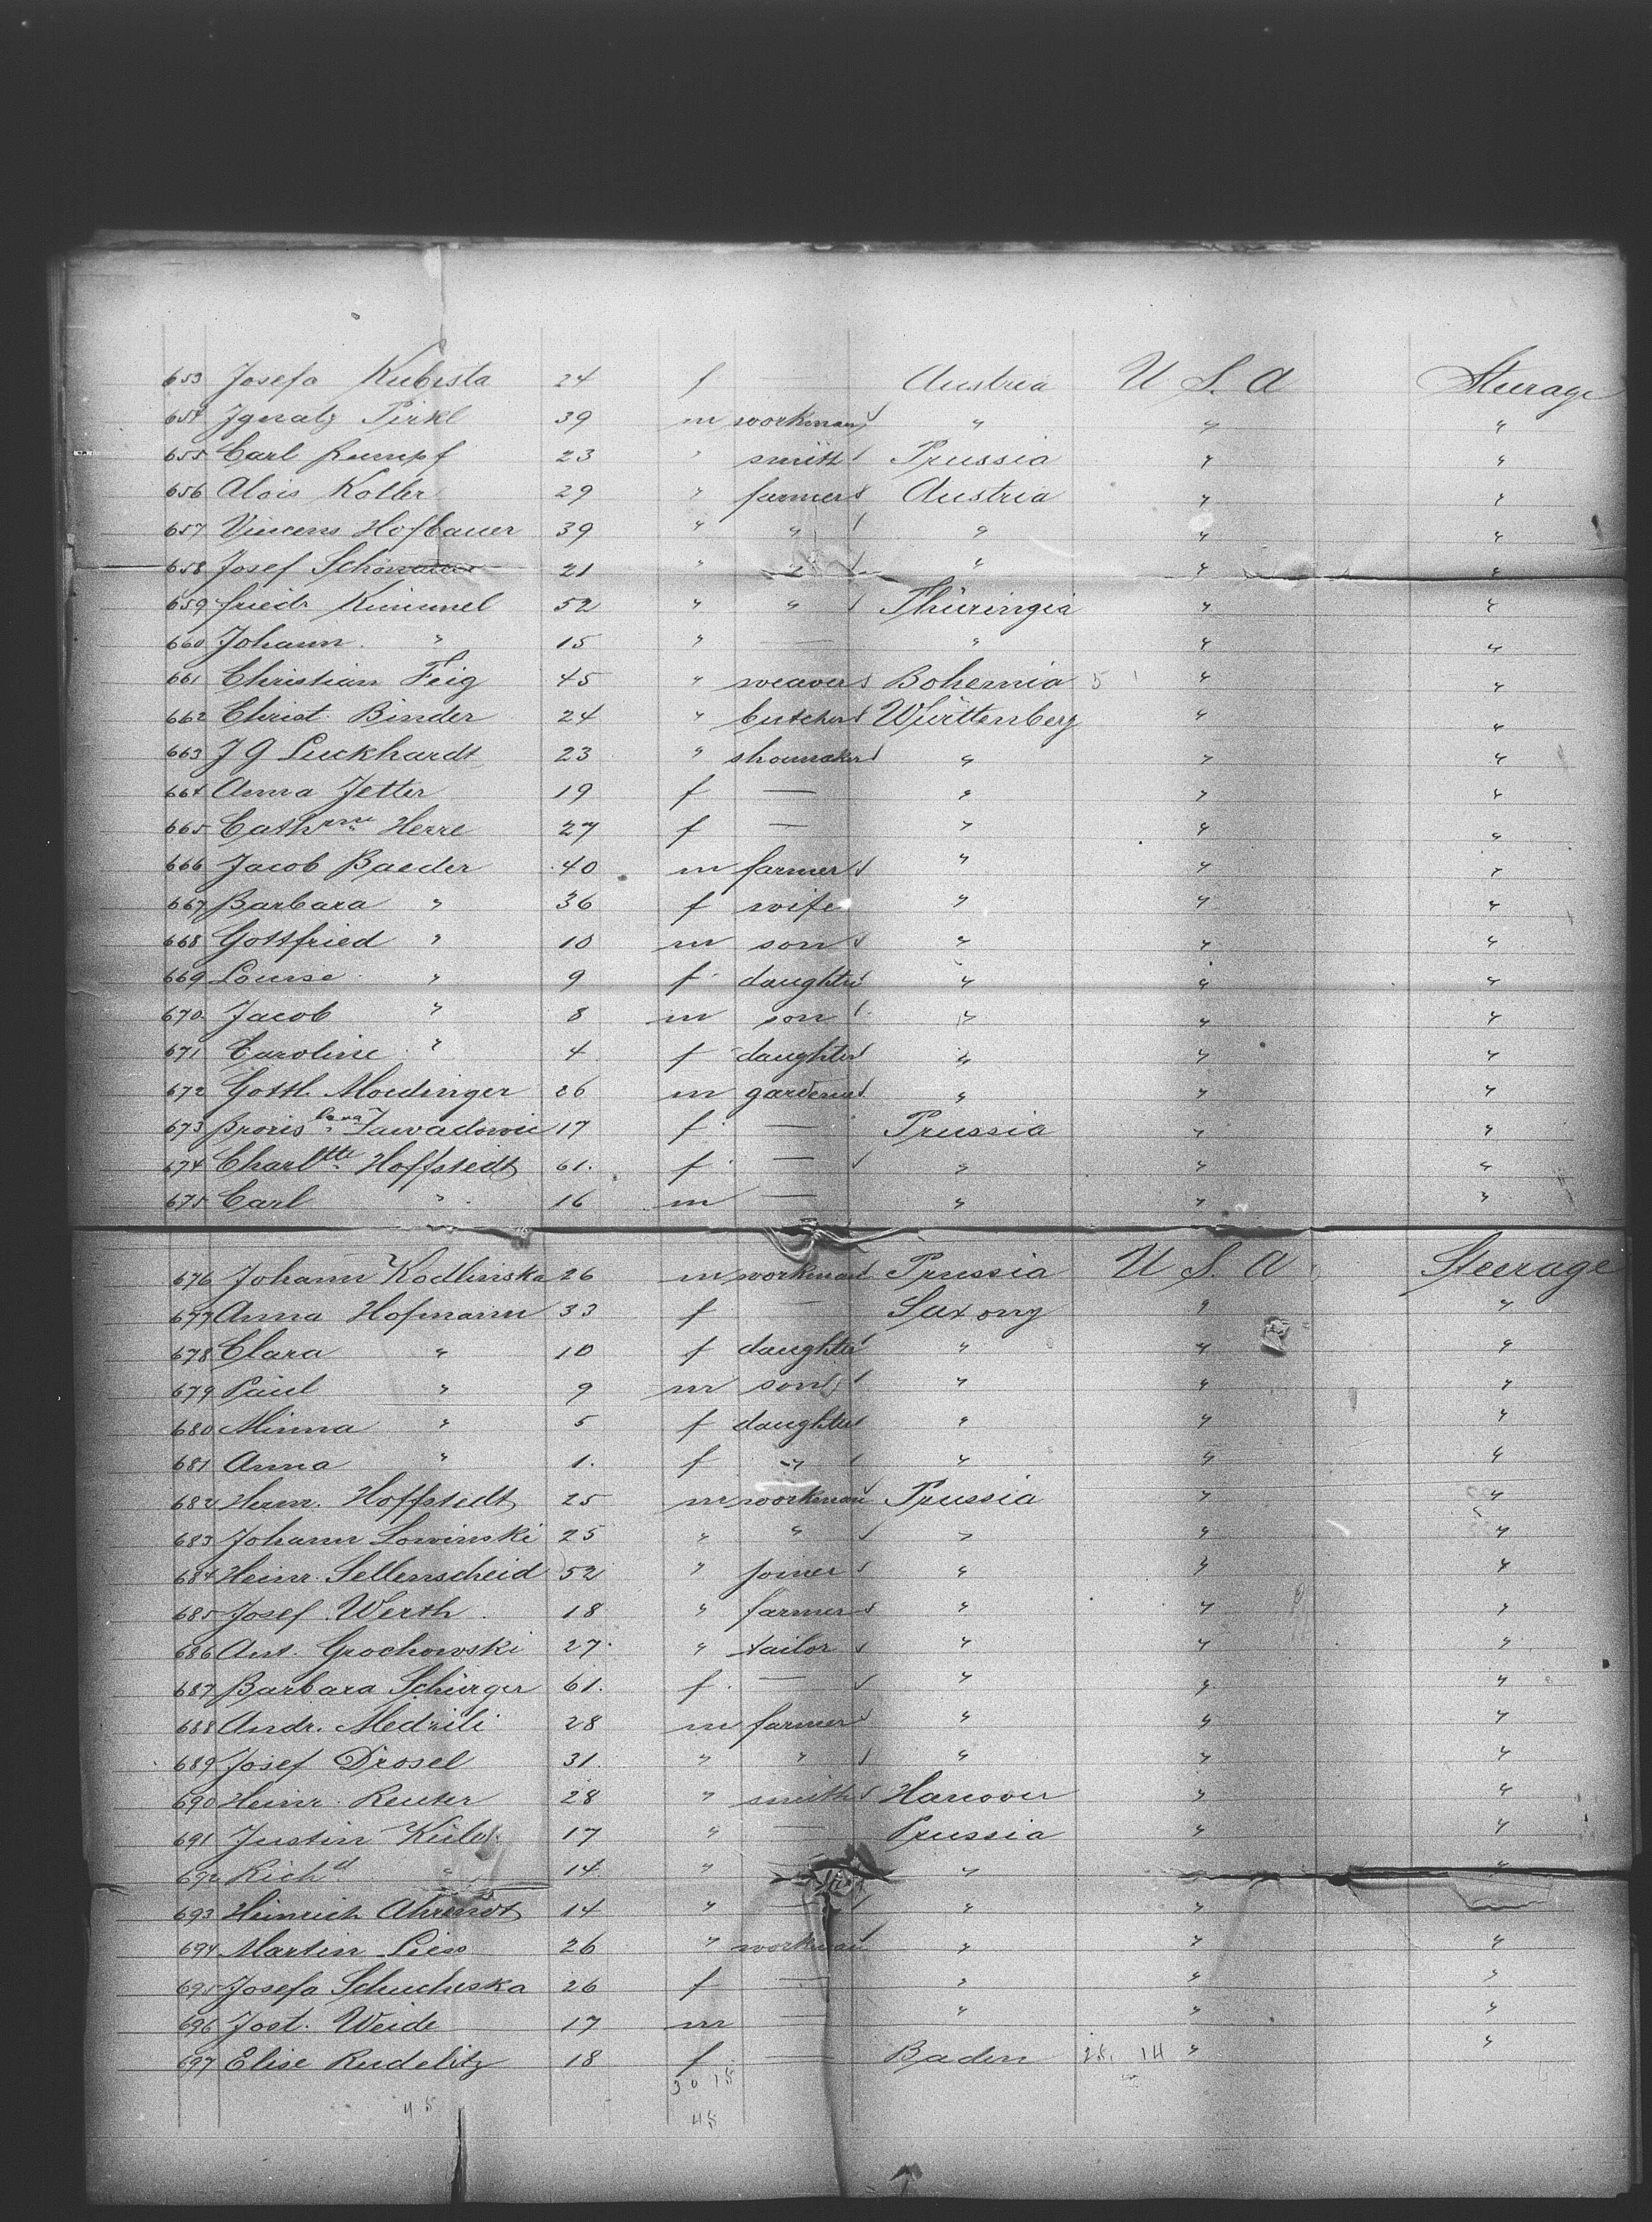 653 Josefa Kubista 24 f Austria U S. A Steerage
654 Ignatz Pirkl 39 m workman " " "
655 Carl Rumpf 23 " smith Prussia " "
656 Alois Koller 29 " farmer Austria " "
657 Vincens Hofbauer 39 " " " " "
658 Josef 21 " " " " "
659 Friedr Kummel 52 " " Thüringia " "
660 Johann " 15 " — " " "
661 Christian Feig 45 " weaver Bohemia 5 " "
662 Christ. Binder 24 " butcher Württenberg " "
663 J G Luckhardt 23 " shoemaker " " "
664 Anna Jetter 19 f — " " "
665 Cathrine Herre 27 f — " " "
666 Jacob Baeder 40 m farmer " " "
667 Barbara " 36 f wife " " "
668 Gottfried " 10 m son " " "
669 Louise " 9 f daughter " " "
670 Jacob " 8 m son " " "
671 Caroline " 4 f daughter " " "
672 Gottl. Moedinger 26 m gardener " " "
673 17 f — Prussia " "
674 Charltte Hoffstedt 61. f — " " "
675 Carl " 16 m — " " "
676 Johann Kodlinska 26 m workman Prussia U S. A Steerage
677 Anna Hofmann 33 f — Saxony " "
678 Clara " 10 f daughter " " "
679 Paul " 9 m son " " "
680 Minna " 5 f daughter " " "
681 Anna " 1. f " " " "
682 Herm. Hoffstedt 25 m workman Prussia " "
683 Johann Lowinski 25 " " " " "
684 Heinr. Sellenscheid 52 " joiner " " "
685 Josef Werth 18 " farmer " " "
686 Ant. Grochowski 27. " tailor " " "
687 Barbara Schirger 61. f. — " " "
688 Andr. Medzili 28 m farmer " " "
689 Josef Drosel 31. " " " " "
690 Heinr. Reuter 28 " smith Hanover " "
691 Justin 17 " — Prussia " "
692 Richd " 14. " — " " "
693 Heinrich Ahrendt 14 " — " " "
694 Martin Liess 26 " workman " " "
695 Josefa Schucheska 26 f — " " "
696 Jost. Weide 17 m — " " "
697 Elise Rudelitz 18 f — Baden 28. 14 " "
30 15
45 45